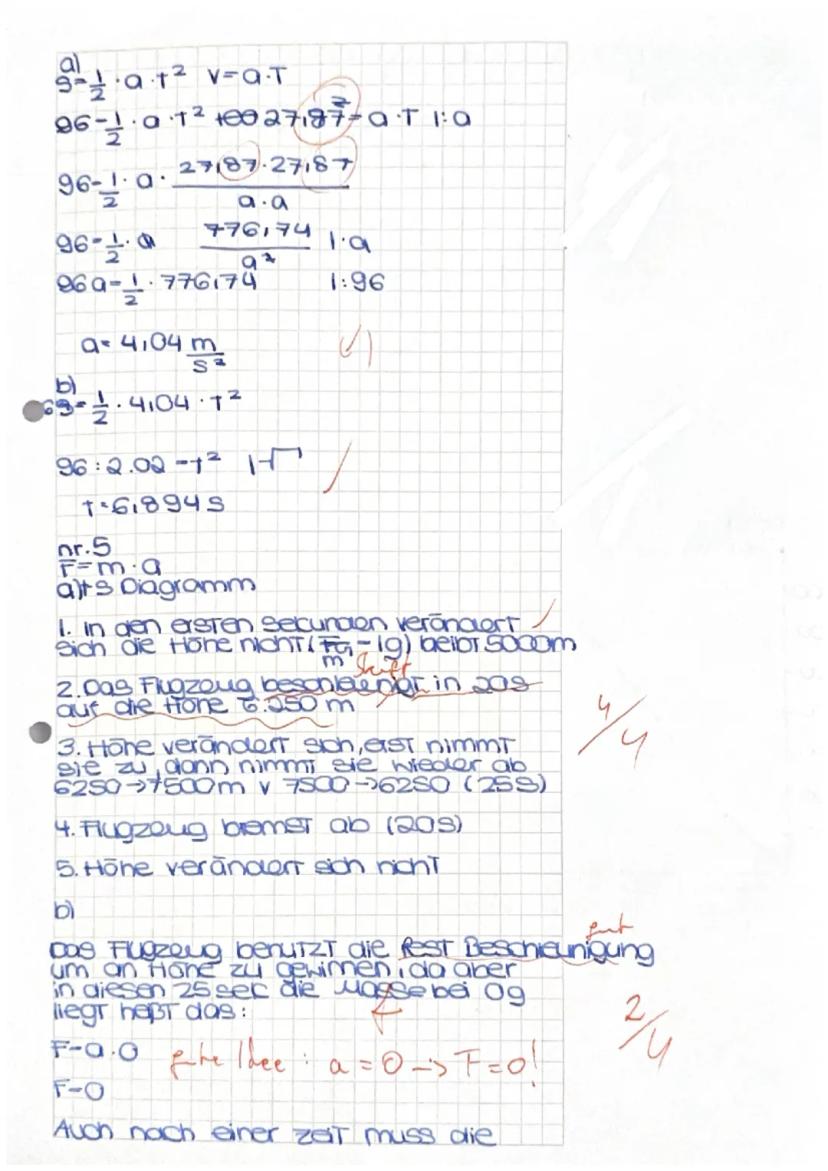 a)
s=1/2·a·t² v=a·T
96=1/2·a·T² 27,87=a·T |:a
96=1/2·a· 27,87·27,87/a·a
96=1/2·a 776,74/a² |·a
96a=1/2·776,74 |:96
a=4,04 m/s²
b)
=1/2·4,04·T²
96:2.02=t² |√
T=6,894s
nr.5
F=m·a
a)ts Diagramm
1. In den ersten Sekunden verändert
sich die Höhe nicht( -1g) beibt 5000m
2. Das Flugzeug in 20s
auf die Höhe 6.250 m
4/4
3. Höhe verändert sich, erst nimmt
sie zu, dann nimmt sie wieder ab
6250→7500m v 7500→6250 (25s)
4. Flugzeug bremst ab (20s)
5. Höhe verändert sich nicht
b)
gut
Das Flugzeug benutzt die fest Beschleunigung
um an Höhe zu gewinnen, da aber
in diesen 25 sec die Masse bei 0g
liegt heßt das:
2/4
F=a·0 gute Idee: a=0 → F=0!
F=0
Auch nach einer zeit muss die